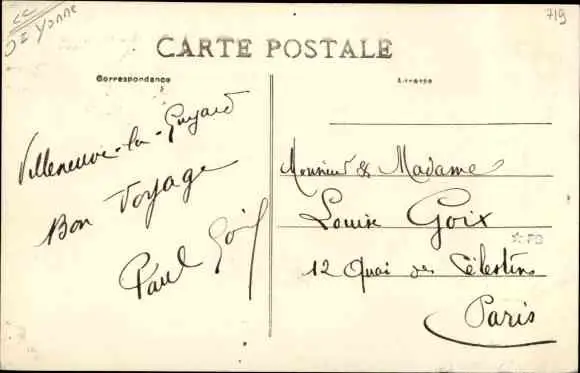 719
Yonne
CARTE POSTALE
Correspondance
Adresse
Villeneuve-la-Guyard
Bon Voyage
Paul Goix
Monsieur & Madame
Louise Goix
12 Quai des Célestins
Paris